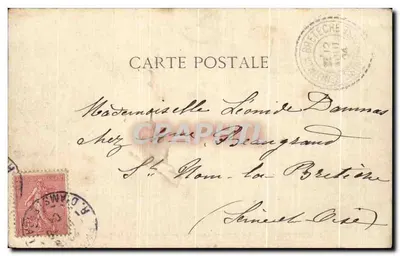 CARTE POSTALE
Mademoiselle Léonide Dammas
chez Mme Beaugrand
St Nom-la-Bretèche
(Seine et Oise)